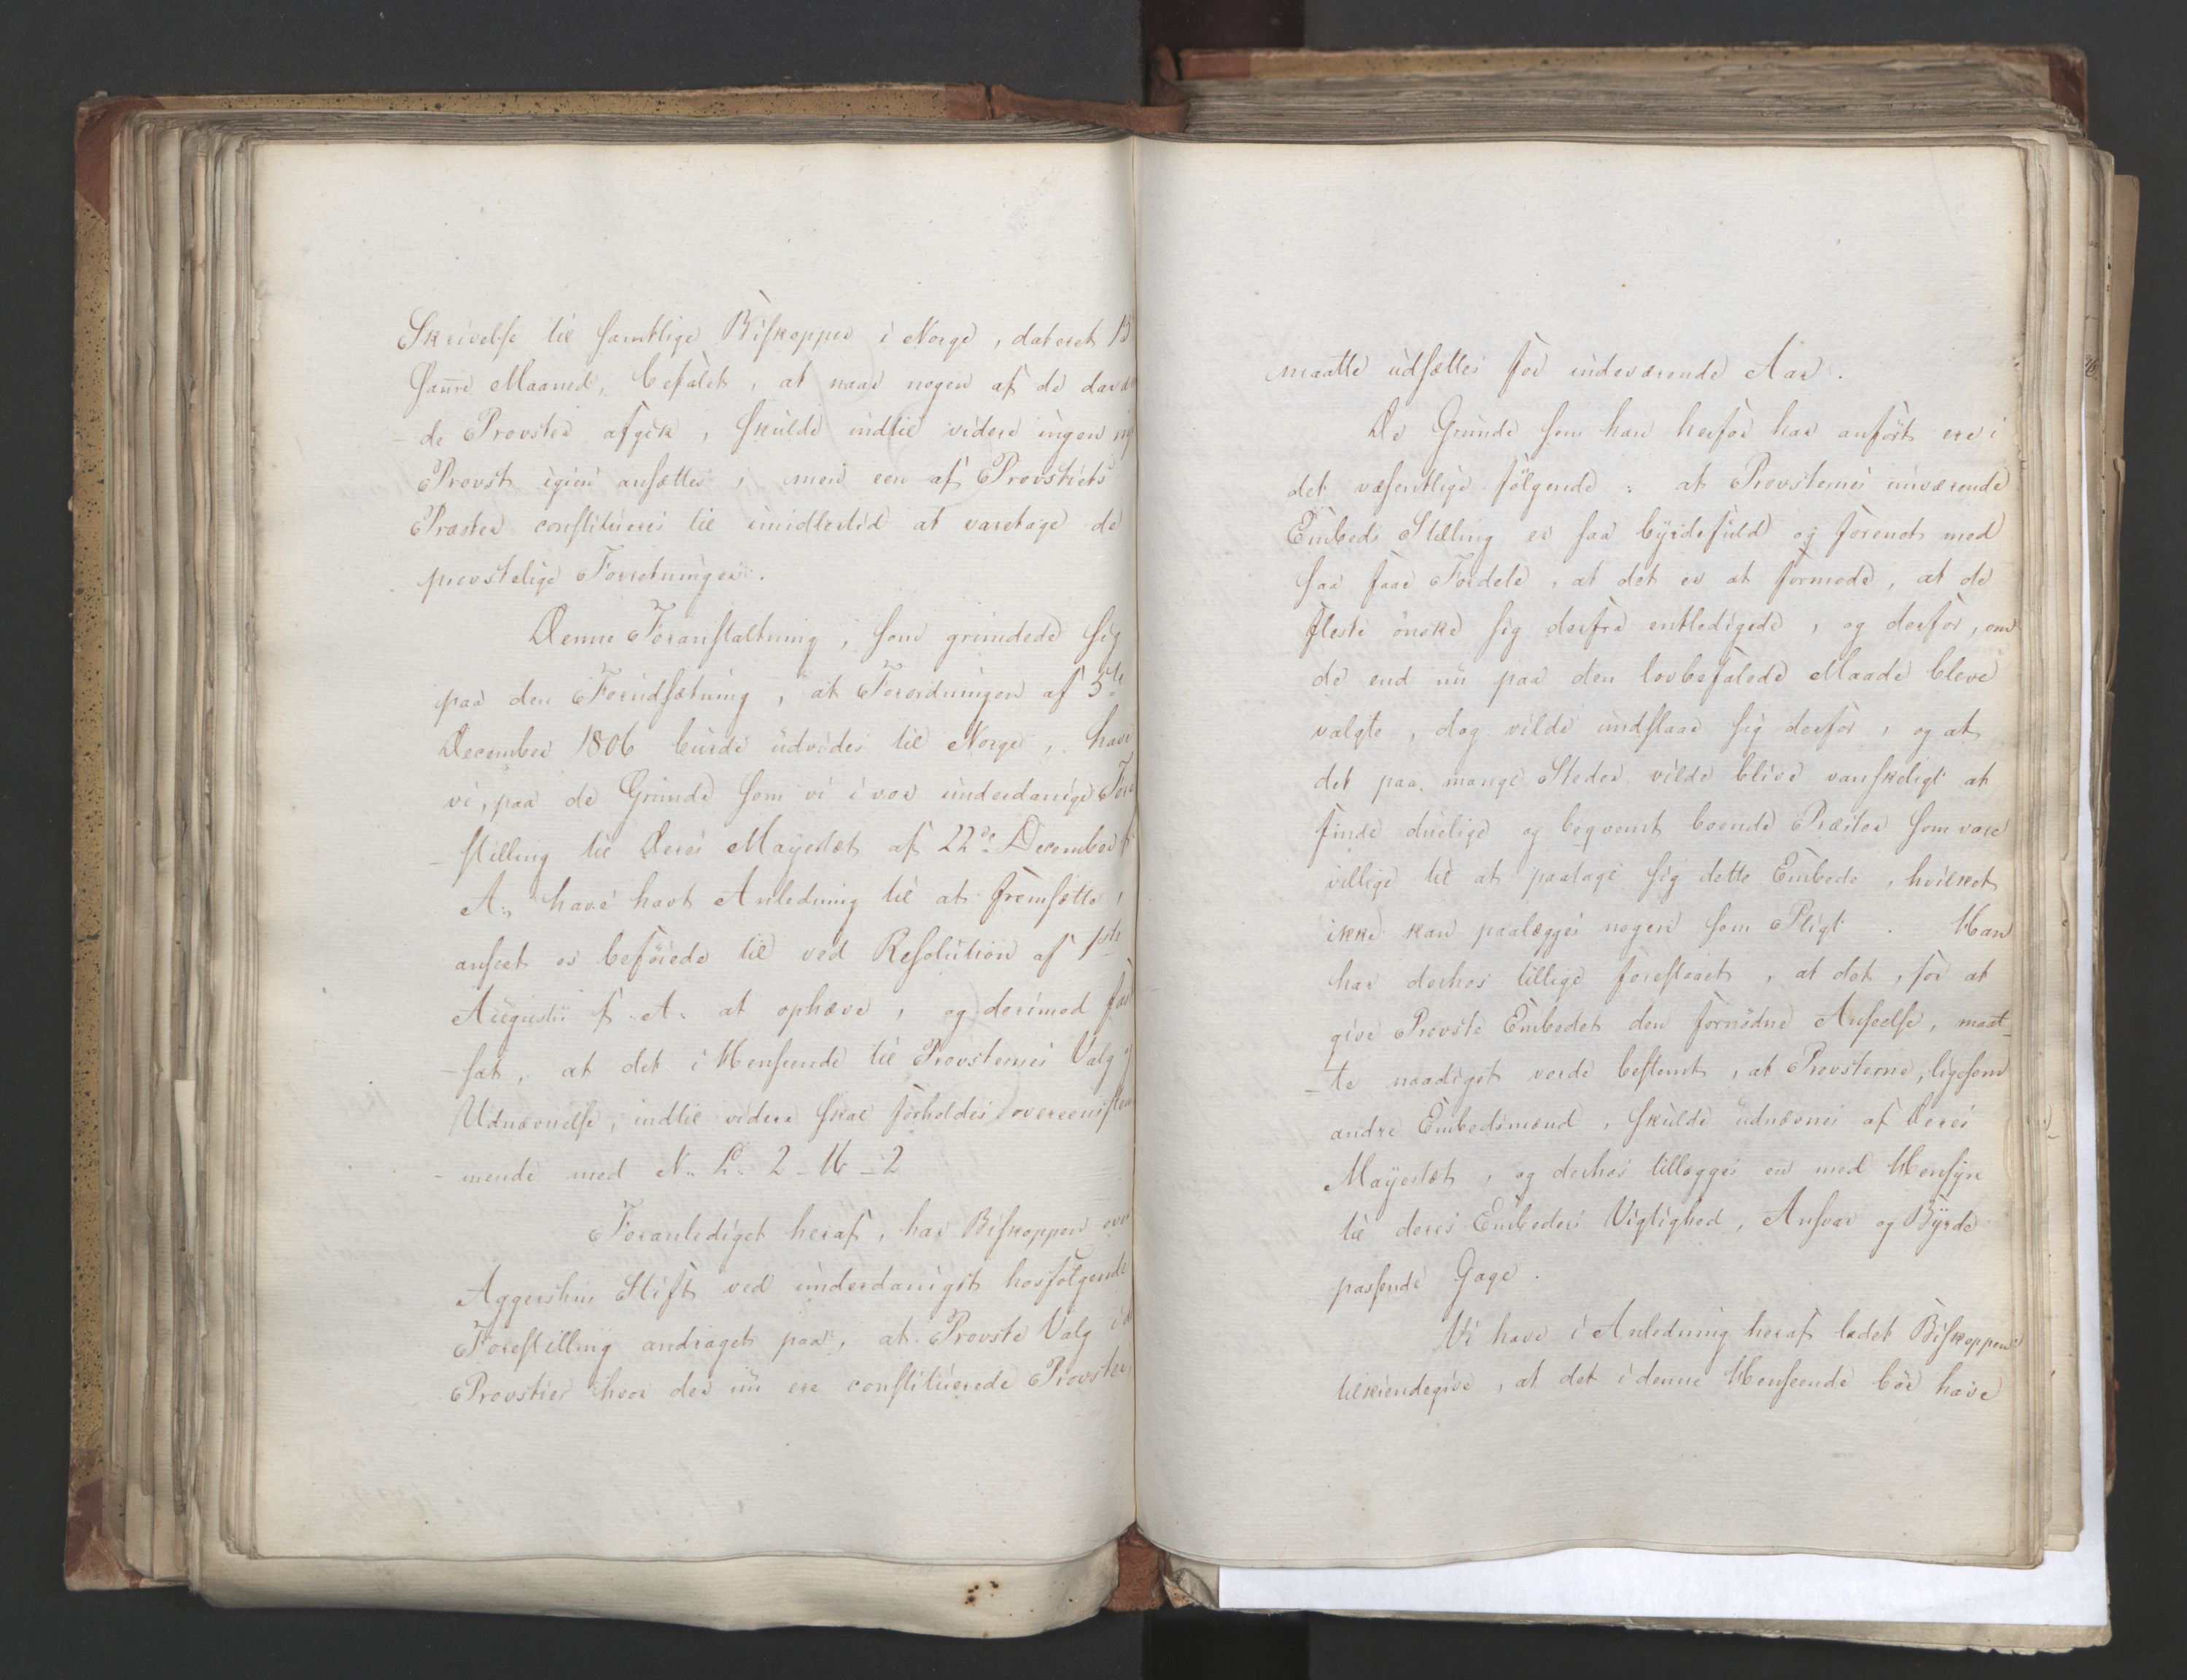 Skrivelse til samtlige Biskopper i Norge, dateret 15
samme Maaned, befalet, at naar nogen af de davæ
-de Provster afgik, skulde indtil videre ingen ny
Provst igien ansættes, men een af Provstiets
Præster constitueres til imidlertid at varetage de
provstelige Forretninger.
Denne Foranstaltning, som grundede sig
paa den Forudsætning, at Forordningen af 5te
December 1806 burde udvides til Norge, have
vi, paa de Grunde som vi i vor underdanige Fore
-stilling til Deres Mayestæt af 22de December f.
A. have havt Anledning til at fremsætte,
anseet os beføiede til ved Resolution af 1ste
Augustii f. A. at ophæve, og derimod fast
-sat, at det i Henseende til Provsternes Valg og
Udnævnelse, indtil videre skal forholdes overeenstem
-mende med N. L. 2-16-2
Foranlediget heraf, har Biskoppen over
Aggershuus Stift ved underdanigst hosfølgende
Forestilling andraget paa, at Provste Valg i de
Provstier hvor der nu ere constituerede Provster,
maatte udsættes for indeværende Aar.
De Grunde som han herfor har anført ere i
det væsentlige følgende: at Provsternes nuværende
Embeds Stilling er saa byrdefuld og forenet med
saa faae Fordele, at det er at formode, at de
fleste ønske sig derfra entledigede, og derfor, om
de end nu paa den lovbefalede Maade bleve
valgte, dog vilde undslaae sig derfor, og at
det paa mange Steder vilde blive vanskeligt at
finde duelige og beqvemt boende Præster som vare
villige til at paatage sig dette Embede, hvilket
ikke kan paalægges nogen som Pligt. Han
har derhos tillige foreslaaet, at det, for at
give Provste Embedet den fornødne Anseelse, maat-
-te naadigst vorde bestemt, at Provsterne, ligesom
andre Embedsmænd, skulde udnævnes af Deres
Mayestæt, og derhos tillægges en med Hensyn
til deres Embeders Vigtighed, Ansvar og Byrde
passende Gage.
Vi have i Anledning heraf ladet Biskoppen
tilkiendegive, at det i denne Henseende bör have